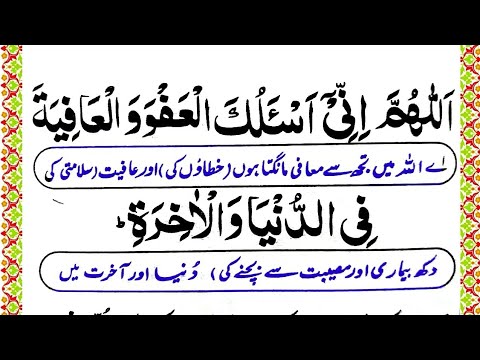 اَللّٰهُمَّ اِنِّیْۤ اَسْئَلُكَ الْعَفْوَ وَ الْعَافِیَةَ
اے اللہ میں تجھ سے معافی مانگتا ہوں (خطاؤں کی) اور عافیت (سلامتی کی
فِی الدُّنْیَا وَ الْاٰخِرَةِ ؕ
دکھ بیماری اور مصیبت سے بچنے کی) دُنیا اور آخرت میں